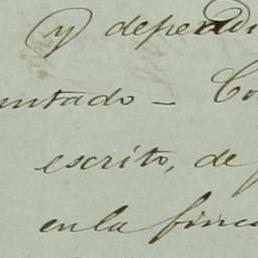 y depend
untado - Co
escrito, de
en la finca